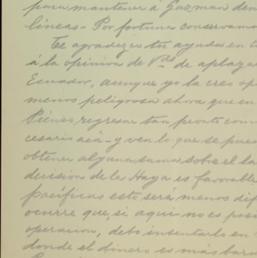 para mantener á Guzman den
líneas. Por fortuna conservamo
Te agradezco tus ayudas en t
á la opinion de Vds de aplaza
Ecuador, aunque yo la creo
menos peligrosa ahora que en
regresa tan pronto com
cesario acá y ven lo que se pue
obtener alguna suma sobre el
decision de la Haya es favorable
pacíficas esto será menos dif
ocurre que, si aquí no es pos
operacion, debo intentarla en
donde el dinero es más bara